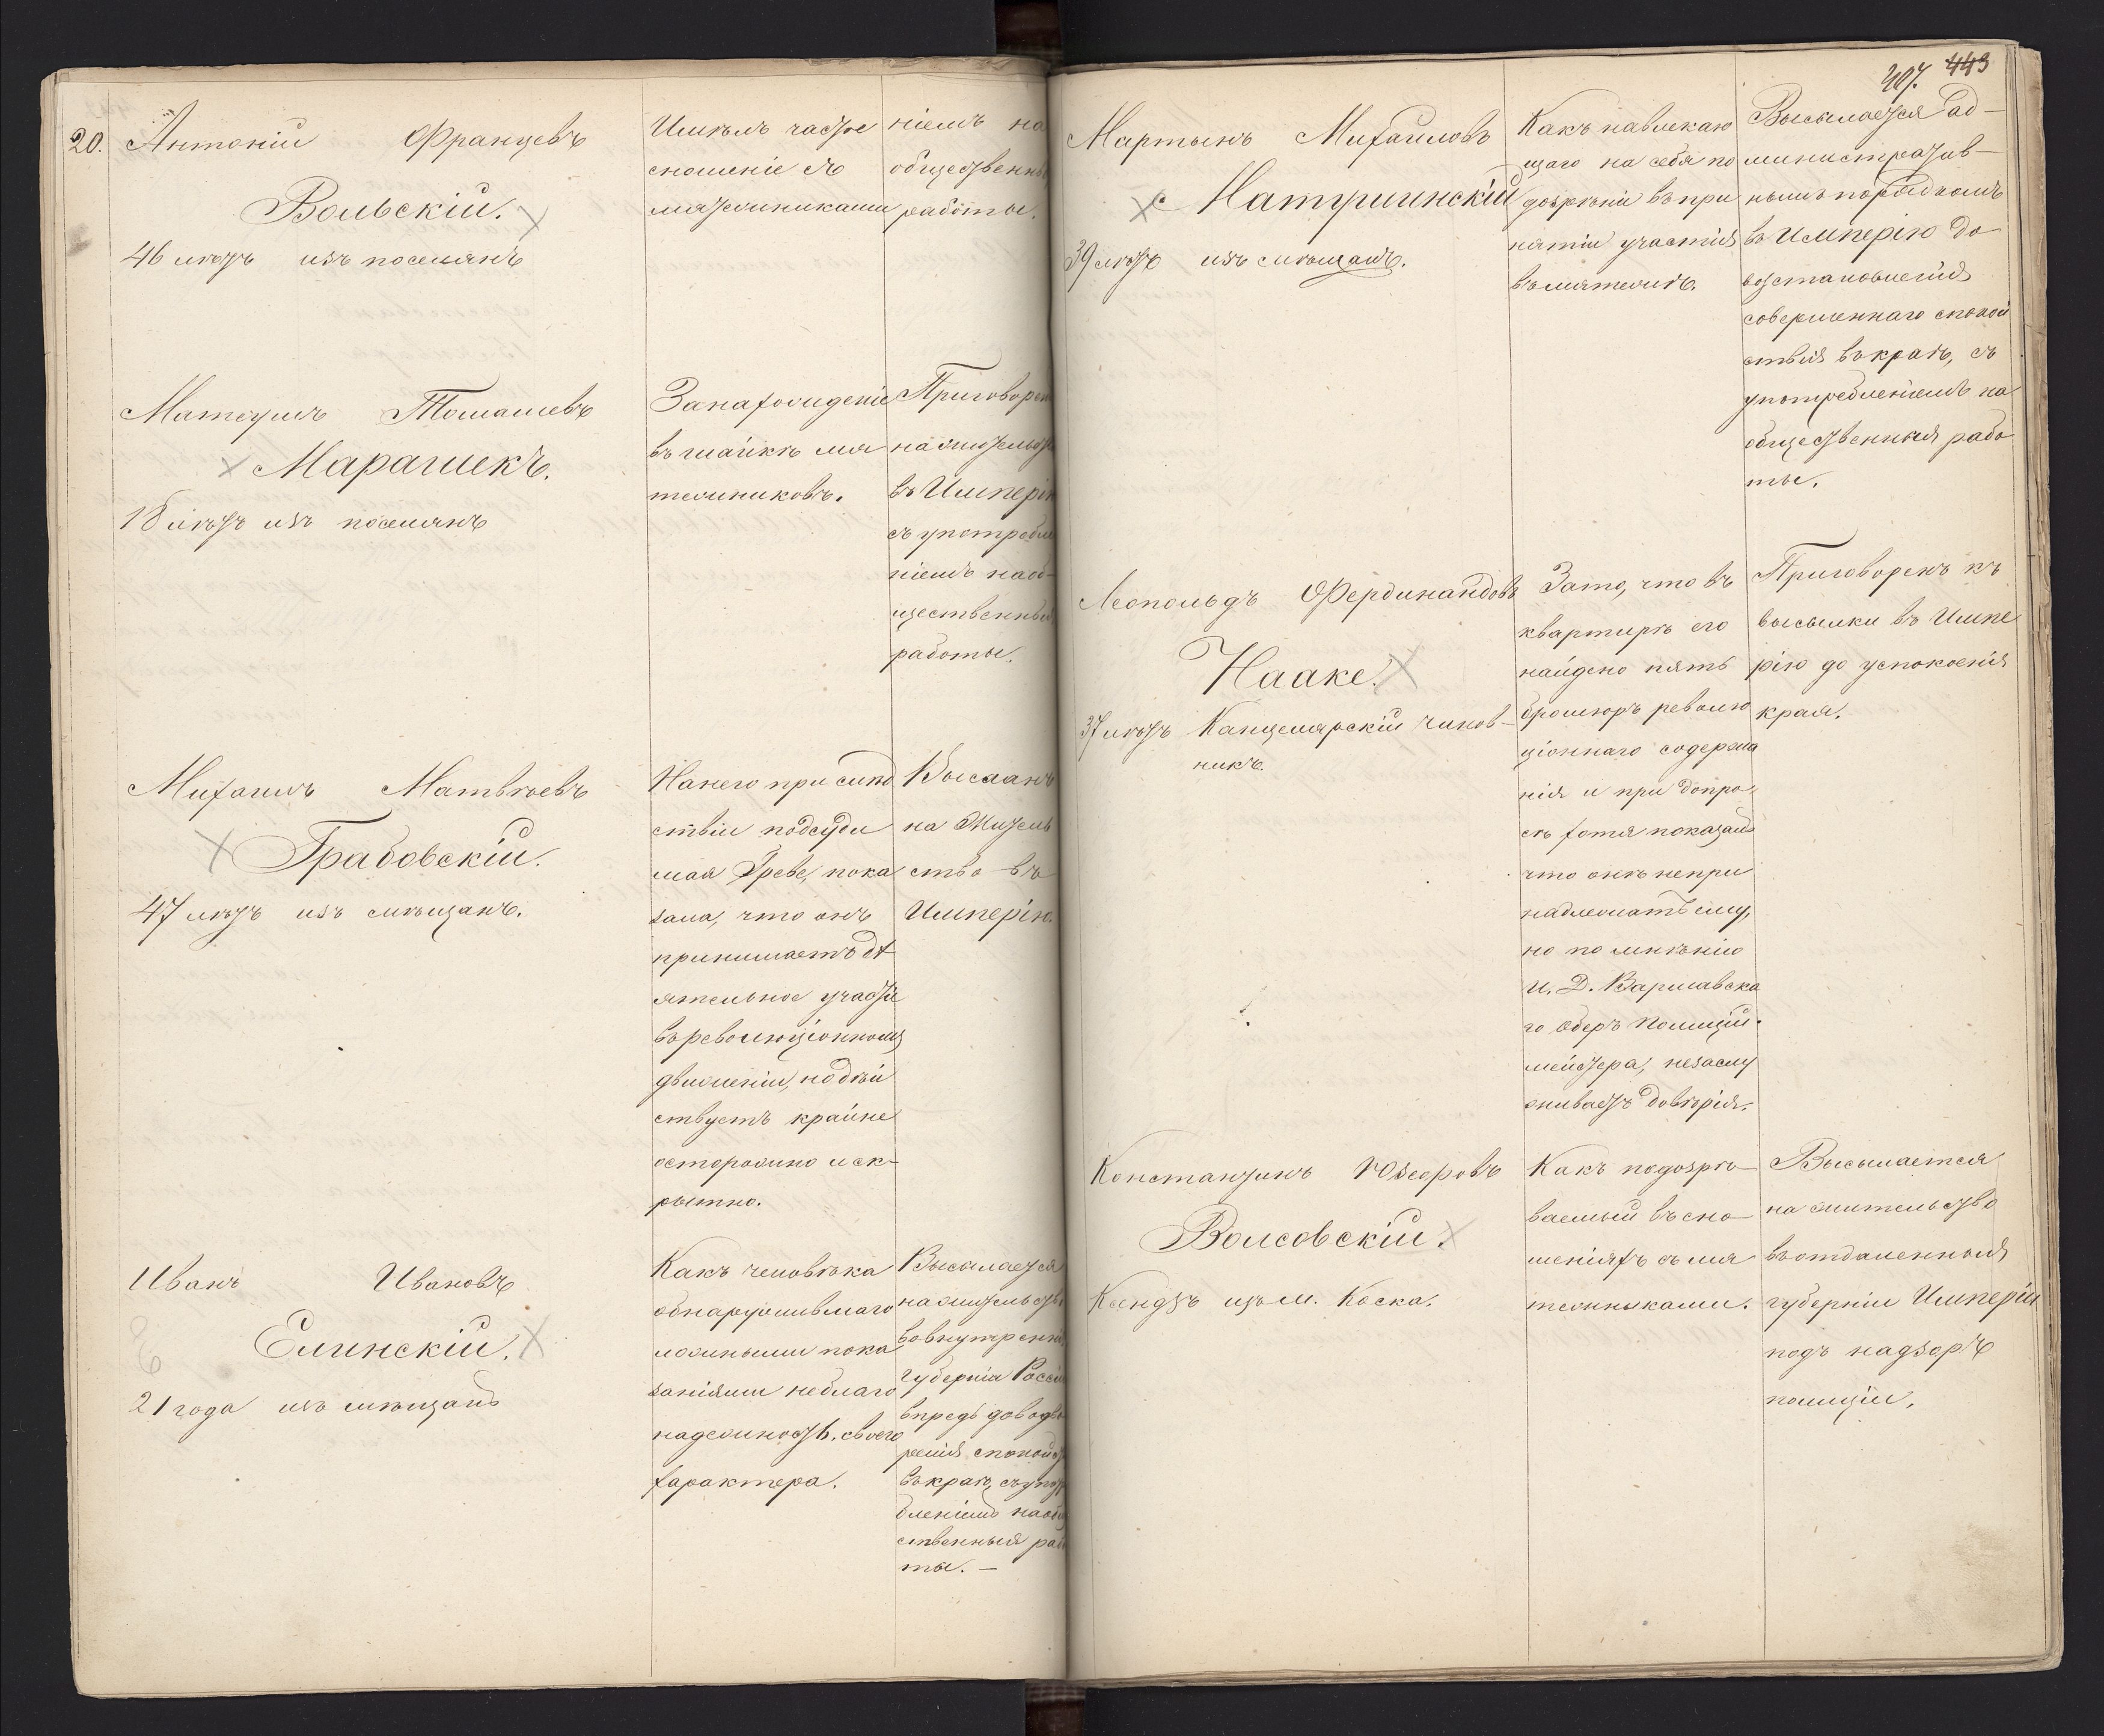 20. Антоній Францевъ
Вольскій.
46 лѣтъ изъ поселянъ
Имѣлъ частое
сношеніе съ
мятежниками
ніемъ на
общественны
работы.
Матеушъ Томашевъ
Марашекъ.
18 лѣтъ изъ поселянъ
За нахожденіе
въ шайкѣ мя
тежниковъ.
Приговорен
на жительст
въ Имперію
съ употребле
ніемъ на об-
щественныя
работы.
Михаилъ Матвѣевъ
Грабовскій.
47 лѣтъ изъ мѣщанъ.
На него при слѣд
ствіи подсуди
мая Греве, пока
зала, что онъ
принимаетъ дѣ
ятельное участіе
въ революціонномъ
движеніи, но дѣй
ствуетъ крайне
осторожно и ск-
рытно.
Высланъ
на житель
ство въ
Имперію.
Иванъ Ивановъ
Елинскій.
21 года изъ мѣщанъ
Какъ человѣка
обнаружившаго
ложными пока
заніями неблаго
надежность своего
характера.
Высылается
на жительство
во внутренні
губерніи Россіи
впредь до водво
ренія спокойст
въ краѣ, съ упот
бленіемъ на общ
ственныя рабо
ты. —
407. 443
Мартынъ Михайловъ
Матушинскій
39 лѣтъ изъ мѣщанъ.
Какъ навлекаю
щаго на себя по
дозрѣніе въ при
нятіи участія
въ мятежѣ.
Высылается ад-
министратив-
нымъ порядкомъ
въ Имперію до
возстановленія
совершеннаго спокой
ствія въ краѣ, съ
употребленіемъ на
общественныя рабо
ты.
Леопольдъ Фердинандовъ
Нааке.
37 лѣтъ Канцелярскій чинов-
никъ.
За то, что въ
квартирѣ его
найдено пять
брошюръ револю
ціоннаго содержа
нія и при допро-
сѣ хотя показалъ
что онѣ непри
надлежатъ ему,
но по мнѣнію
И. Д. Варшавска
го Оберъ Полиціи-
мейстера, незаслу
живаетъ довѣрія.
Приговоренъ къ
высылки въ Импе
рію до успокоенія
края.
Константинъ Юзефовъ
Волсовскій.
Ксендзъ изъ м. Коска.
Какъ подозрѣ-
ваемый въ сно-
шеніяхъ съ мя
тежниками.
Высылается
на жительство
въ отдаленныя
губерніи Имперіи
подъ надзоръ
полиціи.